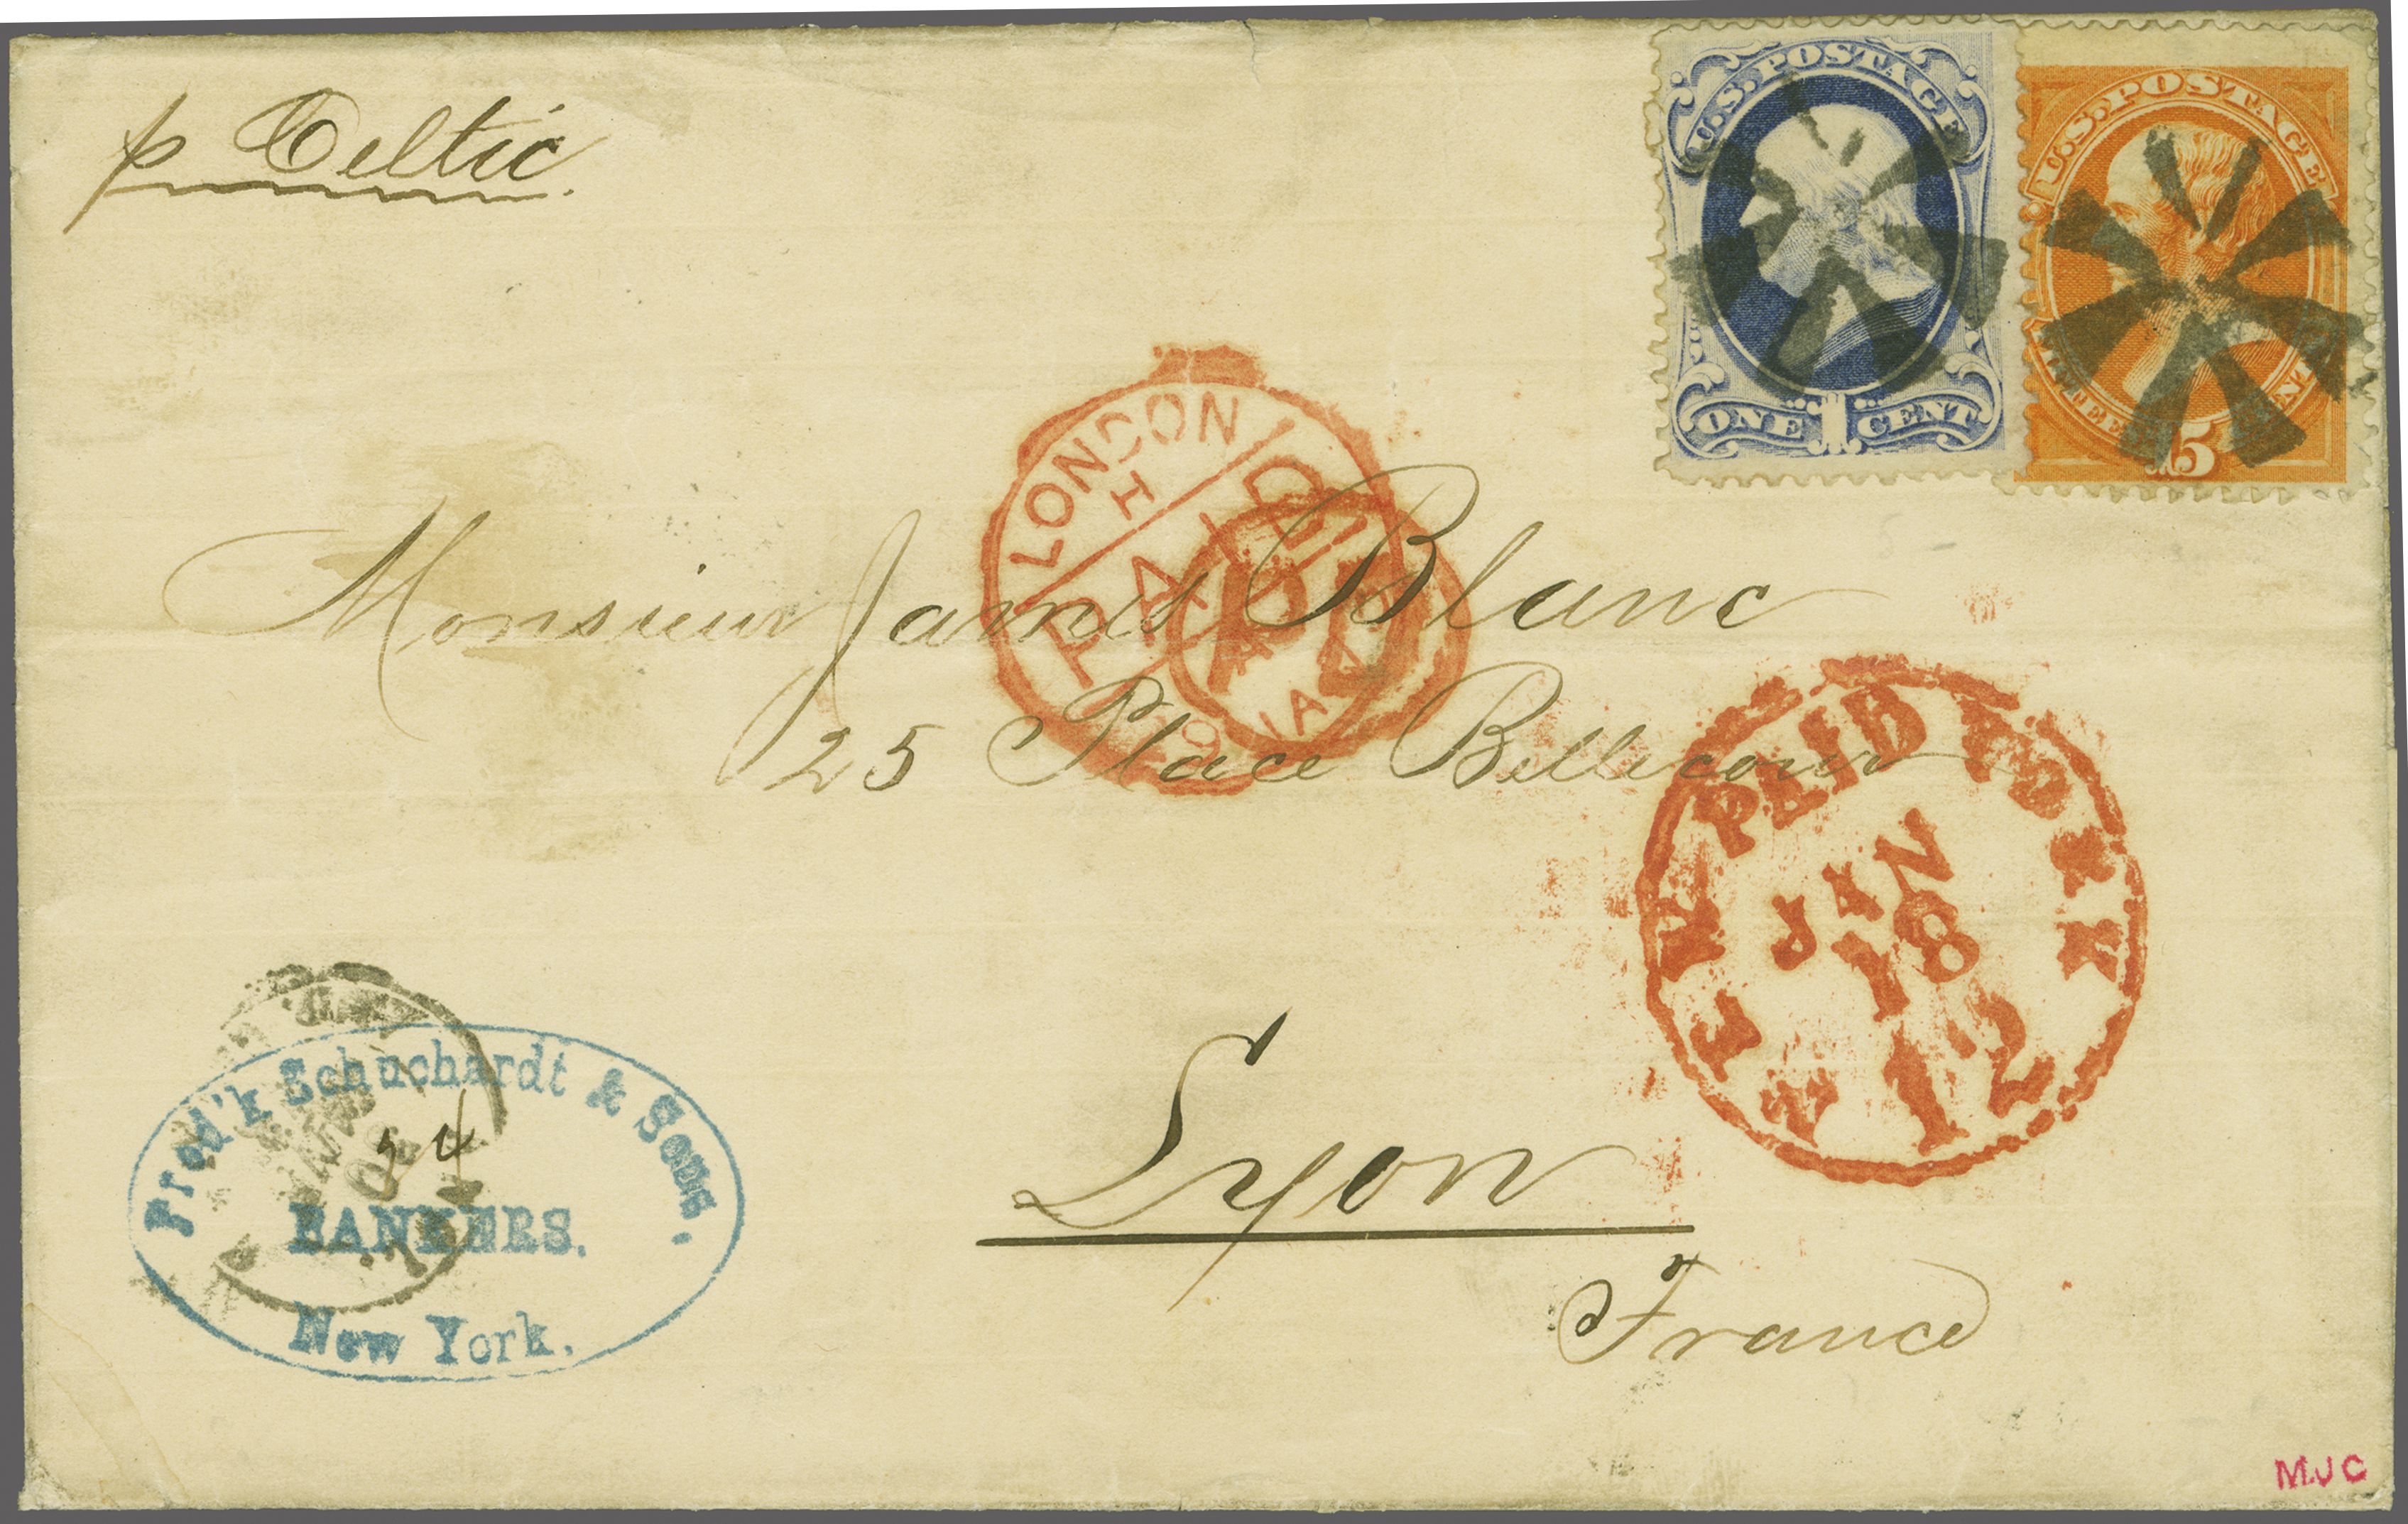 p Celtic.
U.S. POSTAGE
ONE 1 CENT
U.S. POSTAGE
15
LONDON
H
PAID
PD
JA
Monsieur James Blanc
25 Place Bellecour
PAID
JAN
18
12
Fred'k Schuchardt & Sons.
24
BANKERS.
New York.
Lyon
France
MJC